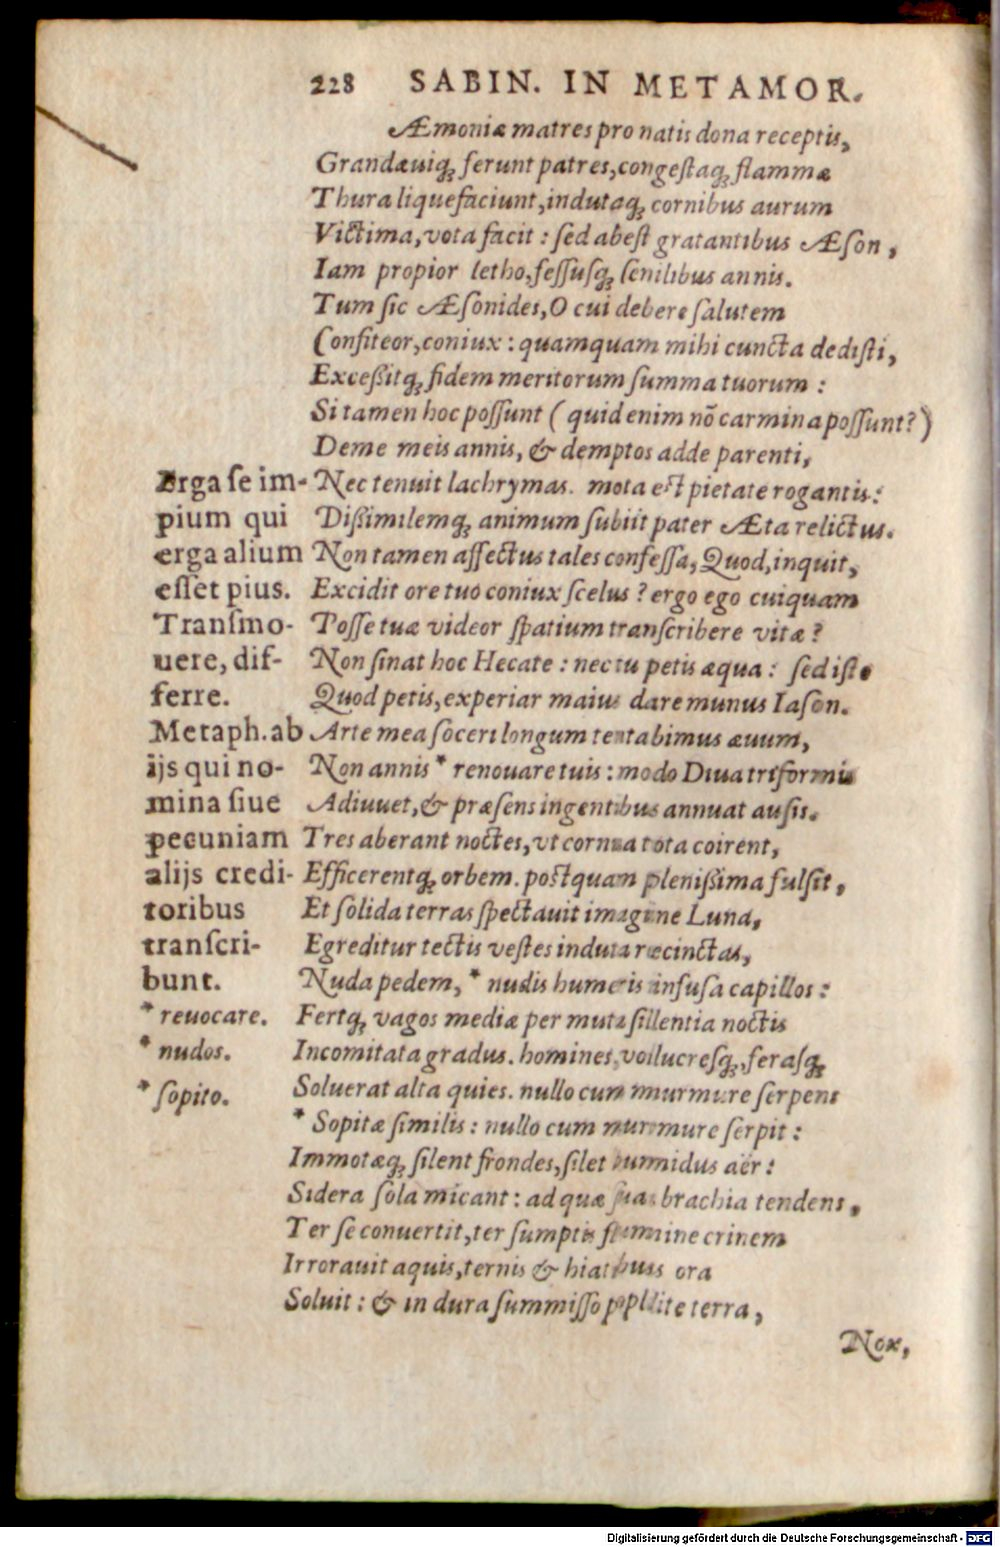 228 SABIN. IN METAMOR.
Æmoniæ matres pro natis dona receptis,
Grandæuiq́; ferunt patres, congestaq́; flammæ
Thura liquefaciunt, indutaq́; cornibus aurum
Victima, vota facit : sed abest gratantibus Æson,
Iam propior letho, fessusq́; senilibus annis.
Tum sic Æsonides, O cui debere salutem
Confiteor, coniux : quamquam mihi cuncta dedisti,
Exceßitq́; fidem meritorum summa tuorum :
Si tamen hoc possunt ( quid enim nō carmina possunt? )
Deme meis annis, & demptos adde parenti,
Nec tenuit lachrymas. mota est pietate rogantis:
Dißimilemq́; animum subiit pater Æta relictus.
Non tamen affectus tales confessa, Quod, inquit,
Excidit ore tuo coniux scelus ? ergo ego cuiquam
Posse tuæ videor spatium transcribere vitæ ?
Non sinat hoc Hecate : nec tu petis æqua : sed isto
Quod petis, experiar maius dare munus Iason.
Arte mea soceri longum tentabimus æuum,
Non annis * renouare tuis : modo Diua triformis
Adiuuet, & præsens ingentibus annuat ausis.
Tres aberant noctes, vt cornua tota coirent,
Efficerentq́; orbem. postquam plenißima fulsit,
Et solida terras spectauit imagine Luna,
Egreditur tectis vestes induta recinctas,
Nuda pedem, * nudis humeris infusa capillos :
Fertq́; vagos mediæ per muta sillentia noctis
Incomitata gradus. homines, volucresq́;, ferasq́;
Soluerat alta quies. nullo cum murmure serpens
* Sopitæ similis : nullo cum murmure serpit :
Immotæq́; silent frondes, silet humidus aër :
Sidera sola micant : ad quæ sua brachia tendens,
Ter se conuertit, ter sumptis flumine crinem
Irrorauit aquis, ternis & hiatibus ora
Soluit : & in dura summisso poplite terra,
Nox,
Erga se im-
pium qui
erga alium
esset pius.
Transmo-
uere, dif-
ferre.
Metaph. ab
ijs qui no-
mina siue
pecuniam
alijs credi-
toribus
transcri-
bunt.
* reuocare.
* nudos.
* sopito.
Digitalisierung gefördert durch die Deutsche Forschungsgemeinschaft - DFG